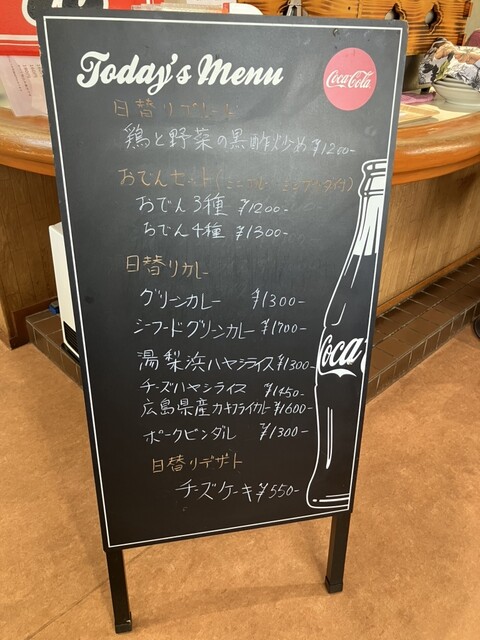 Today's Menu
Coca-Cola
日替りプレート
鶏と野菜の黒酢炒め ¥1200-
おでんセット(
おでん3種 ¥1200-
おでん4種 ¥1300-
日替りカレー
グリーンカレー ¥1300-
シーフードグリーンカレー ¥1700-
湯梨浜ハヤシライス ¥1300-
チーズハヤシライス ¥1450-
広島県産カキフライカレー ¥1600-
ポークビンダル ¥1300-
日替りデザート
チーズケーキ ¥550-
Coca